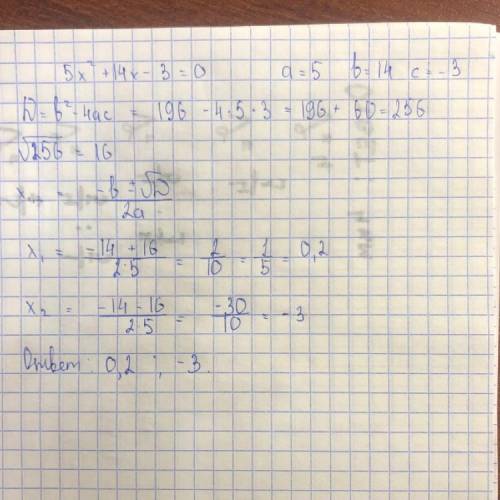 5x² + 14x - 3 = 0 a = 5 b = 14 c = -3
D = b² - 4ac = 196 - 4·5·3 = 196 + 60 = 256
√256 = 16
x₁,₂ = (-b ± √D)/(2a)
x₁ = (-14 + 16)/(2·5) = 2/10 = 1/5 = 0,2
x₂ = (-14 - 16)/(2·5) = -30/10 = -3
Ответ: 0,2 ; -3.